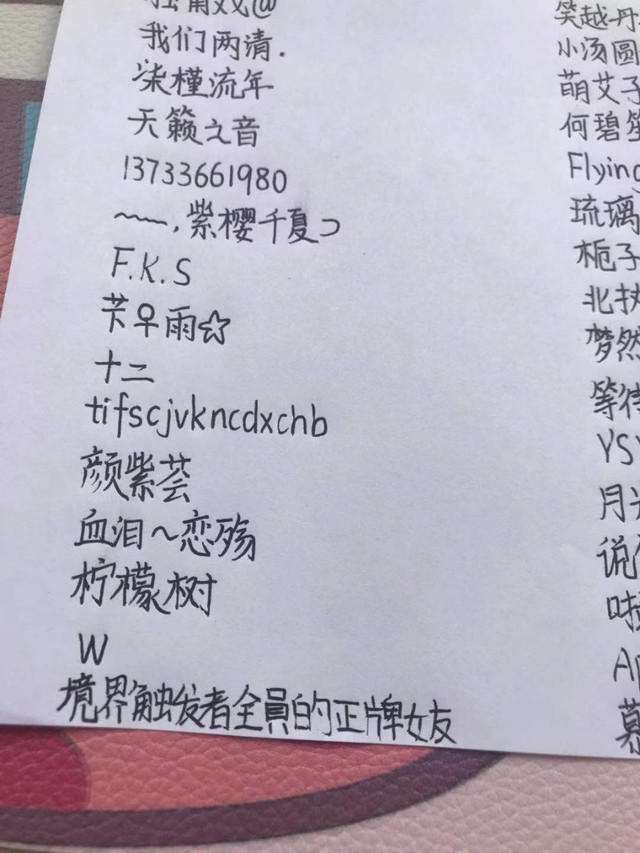 我们两清.
柒槿流年
天籁之音
13733661980
～～.紫樱千夏つ
F.K.S
苄♀雨☆
十二
tifscjvkncdxchb
颜紫荟
血泪～恋殇
柠檬树
W
境界触发者全員的正牌女友
笑越丹
小汤圆
萌艾子
何碧笙
Flying
琉璃
栀子
北
梦然
等待
YS
月光
说
啦
Ap
慕